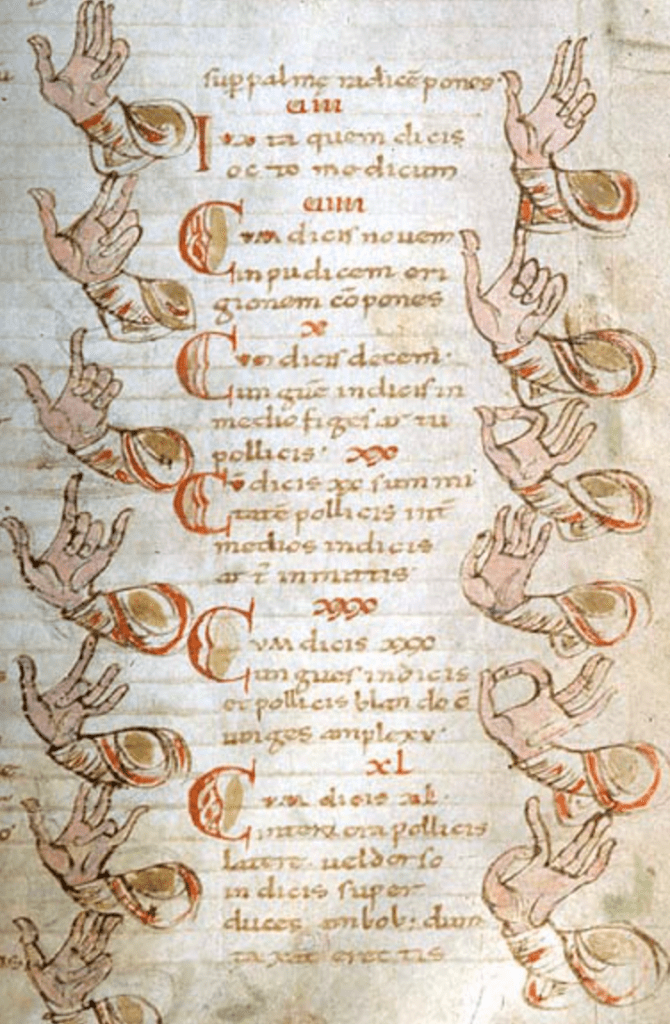 suppalmę radicē pones
uiii
Ixta quem dicis
octo medicum
uiiii
Cum dicis nouem
inpudicem eri
gionem cōpones
x
Cum dicis decem
unguē indicis in
medio figes ar tu
pollicis xx
Cū dicis xx summi
tatē pollicis int̄
medios indicis
inmittis
xxx
Cum dicis xxx
ungues indicis
et pollicis blando
iunges amplexu
xl
Cum dicis xl
interiora pollicis
latere uel dorso
indicis super
duces ambob; dum
taxat erectis